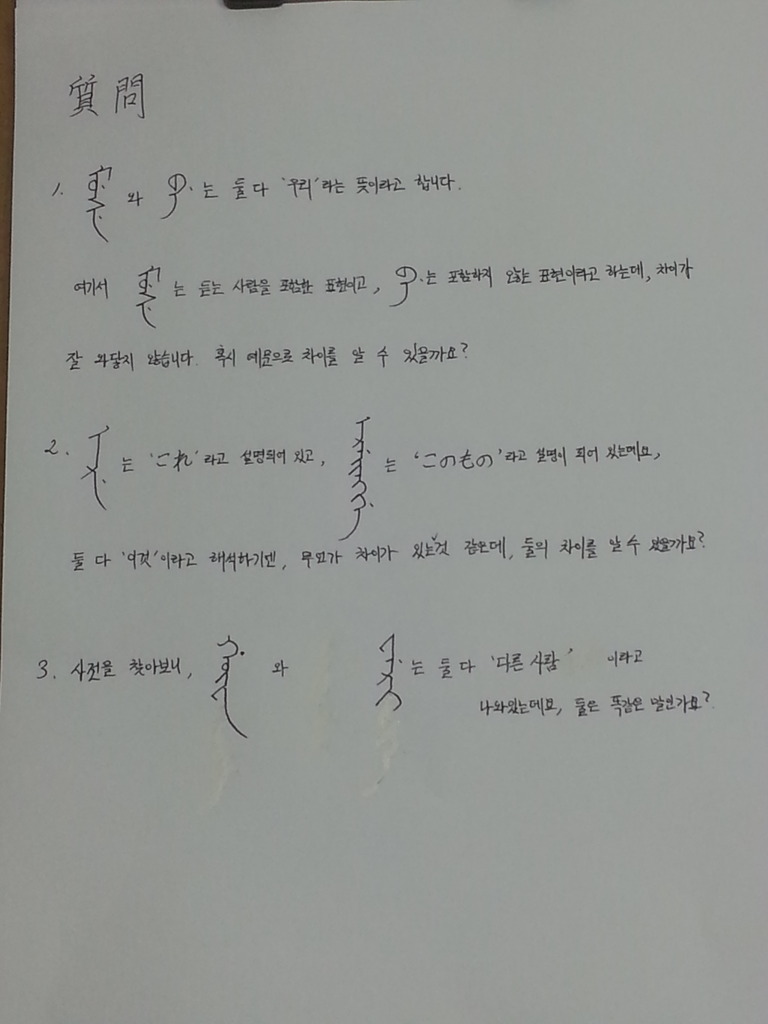 質問
1. ᠮᡠᠰᡝ 와 ᠪᡝ 는 둘 다 '우리'라는 뜻이라고 합니다.
여기서 ᠮᡠᠰᡝ 는 듣는 사람을 포함한 표현이고, ᠪᡝ 는 포함하지 않는 표현이라고 하는데, 차이가
잘 와닿지 않습니다. 혹시 예문으로 차이를 알 수 있을까요?
2. ᡝᡵᡝ 는 'これ'라고 설명되어 있고, 는 'このもの'라고 설명이 되어 있는데요,
둘 다 '이것'이라고 해석하기엔, 무언가 차이가 있는것 같은데, 둘의 차이를 알 수 있을까요?
3. 사전을 찾아보니, 와 는 둘 다 '다른 사람' 이라고
나와있는데요, 둘은 똑같은 말인가요?